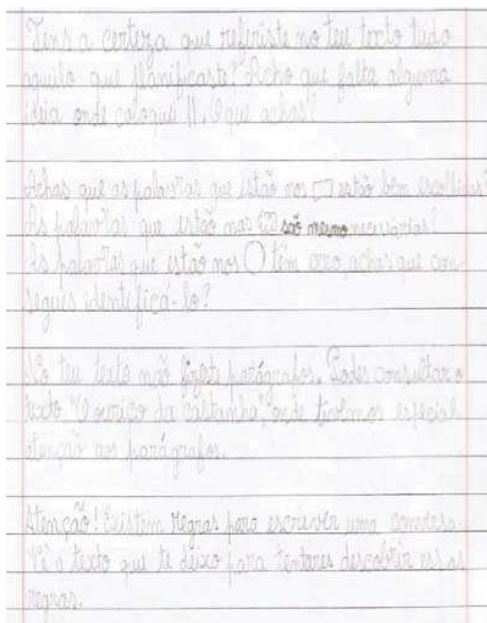 Tens a certeza que referiste no teu texto tudo
aquilo que planificaste? Acho que falta alguma
ideia onde coloquei //. O que achas?
Achas que as palavras que estão nos □ estão bem escolhidas?
As palavras que estão nas são mesmo necessárias?
As palavras que estão nos ○ têm erro, achas que con-
segues identificá-lo?
No teu texto não fizeste parágrafos. Podes consultar o
texto "O ouriço da castanha", onde tivemos especial
atenção aos parágrafos.
Atenção! Existem regras para escrever uma conversa.
Vê o texto que te deixo para tentares descobrir essas
regras.